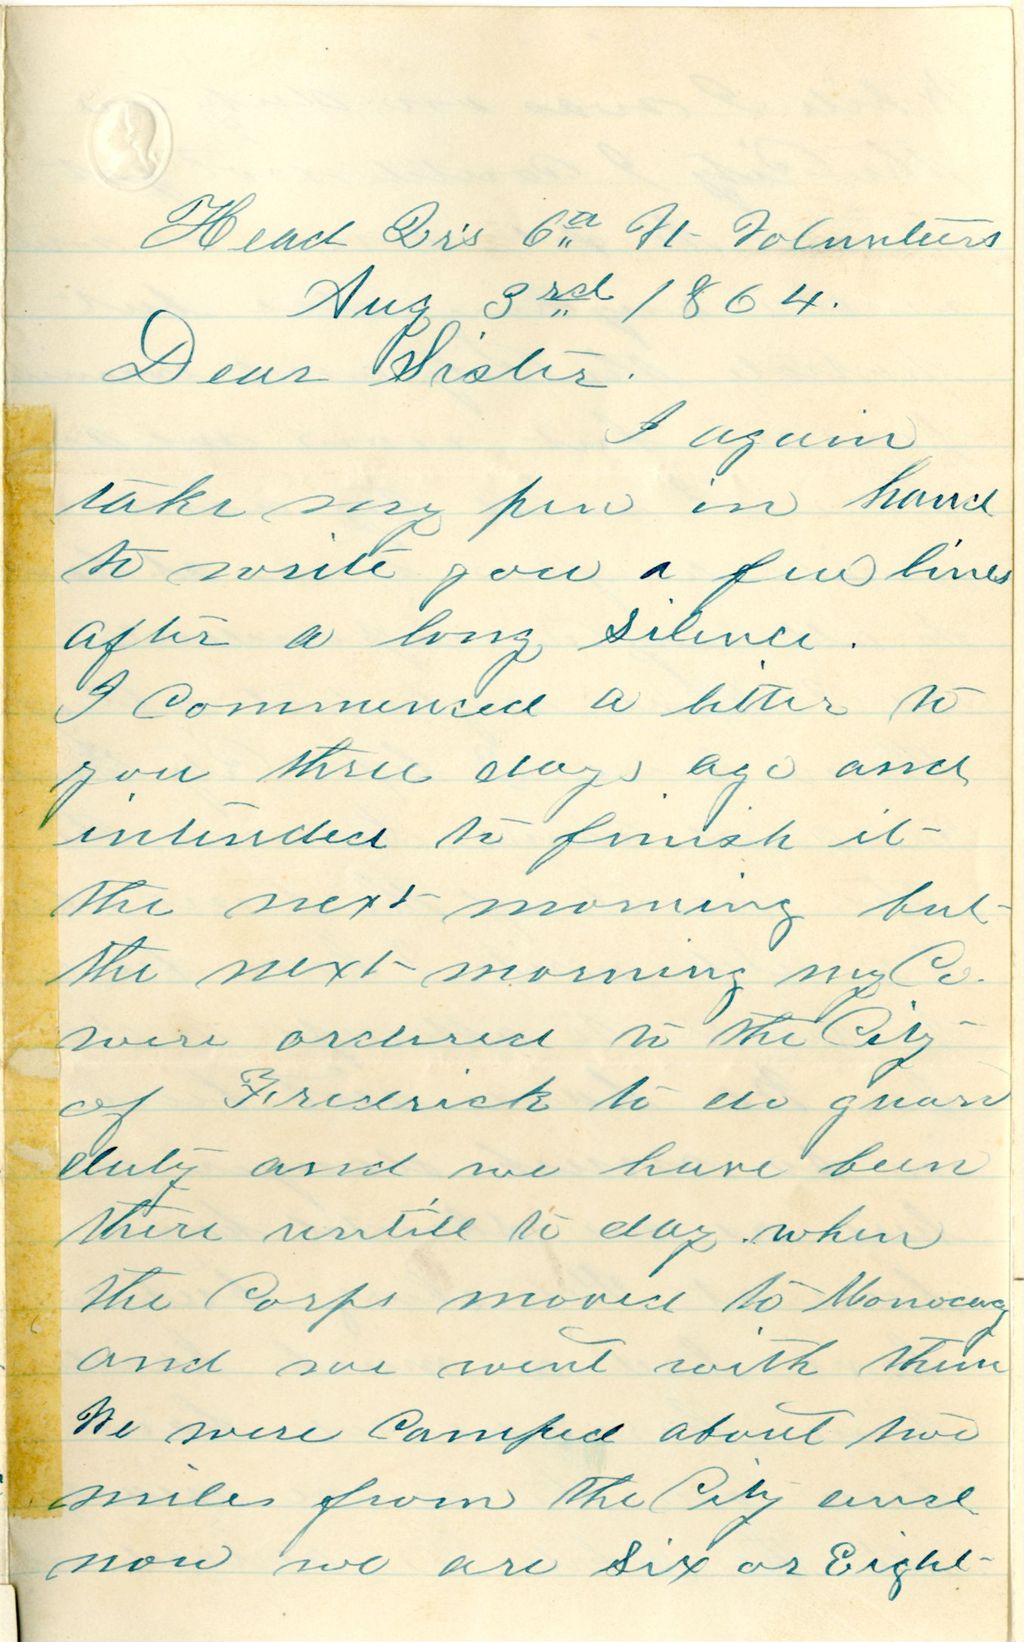 Head Qr's 6th Vt Volunteers
Aug 3rd 1864.
Dear Sister.
I again
take my pen in hand
to write you a few lines
after a long silence.
I commenced a letter to
you three days ago and
intended to finish it
the next morning but
the next morning my Co.
were ordered to the City
of Fredrick to do guard
duty and we have been
there untill to day. when
the Corps moved to Monocacy
and we went with them
We were camped about two
miles from the City and
now we are Six or Eight